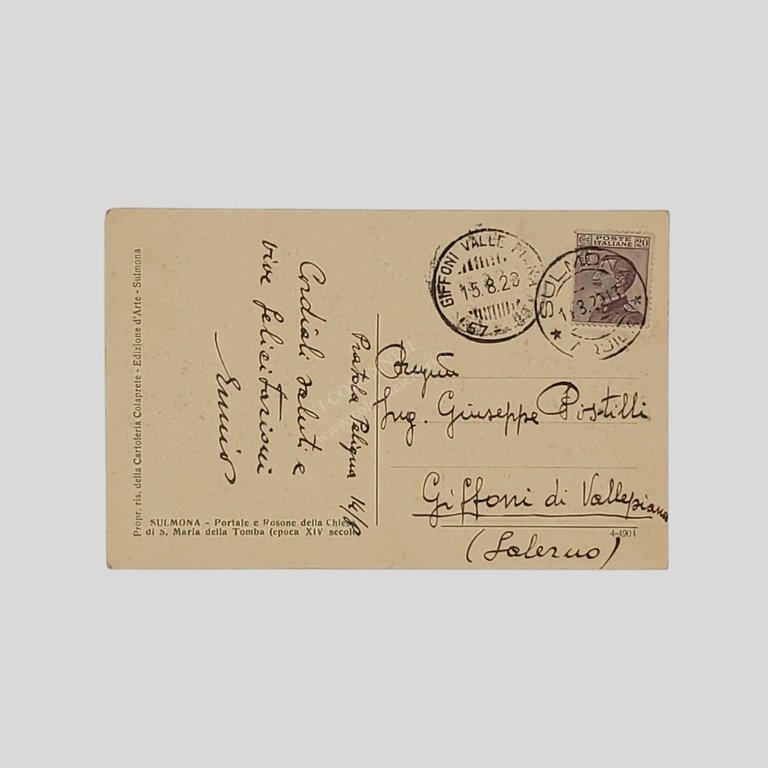 Propr. ris. della Cartoleria Colaprete - Edizione d'Arte - Sulmona
SULMONA - Portale e Rosone della Chiesa
di S. Maria della Tomba (epoca XIV secolo
Pratola Peligna 14/8
Cordiali saluti e
vive felicitazioni
Ennio
GIFFONI VALLE PIANA
15.8.28
57 - 83
SULMONA
POSTE
ITALIANE
Cent 20
Ing. Giuseppe Postilli
Giffoni di Vallepiana
(Salerno)
4-4904